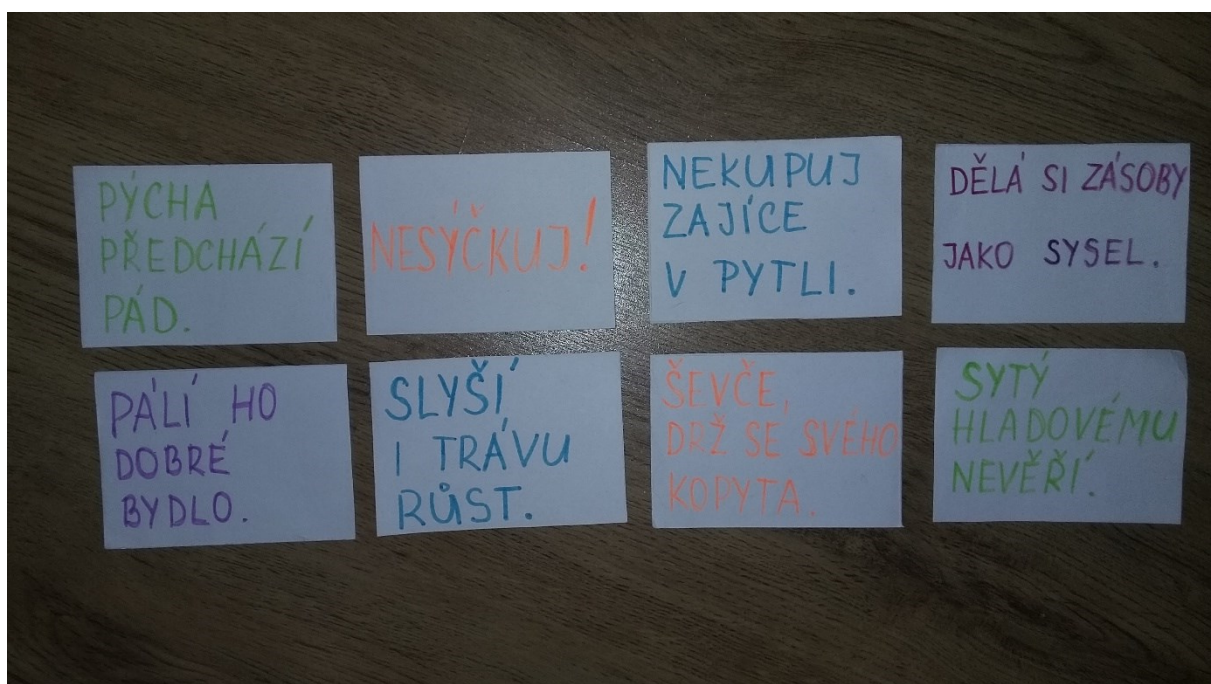 PÝCHA
PŘEDCHÁZÍ
PÁD.
NESÝČKUJ!
NEKUPUJ
ZAJÍCE
V PYTLI.
DĚLÁ SI ZÁSOBY
JAKO SYSEL.
PÁLÍ HO
DOBRÉ
BYDLO.
SLYŠÍ
I TRÁVU
RŮST.
ŠEVČE,
DRŽ SE SVÉHO
KOPYTA.
SYTÝ
HLADOVÉMU
NEVĚŘÍ.